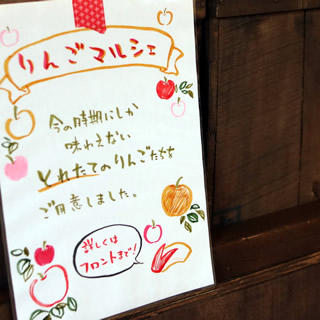 りんごマルシェ
今の時期にしか
味わえない
とれたてのりんごたちを
ご用意しました。
詳しくは
フロントまで!